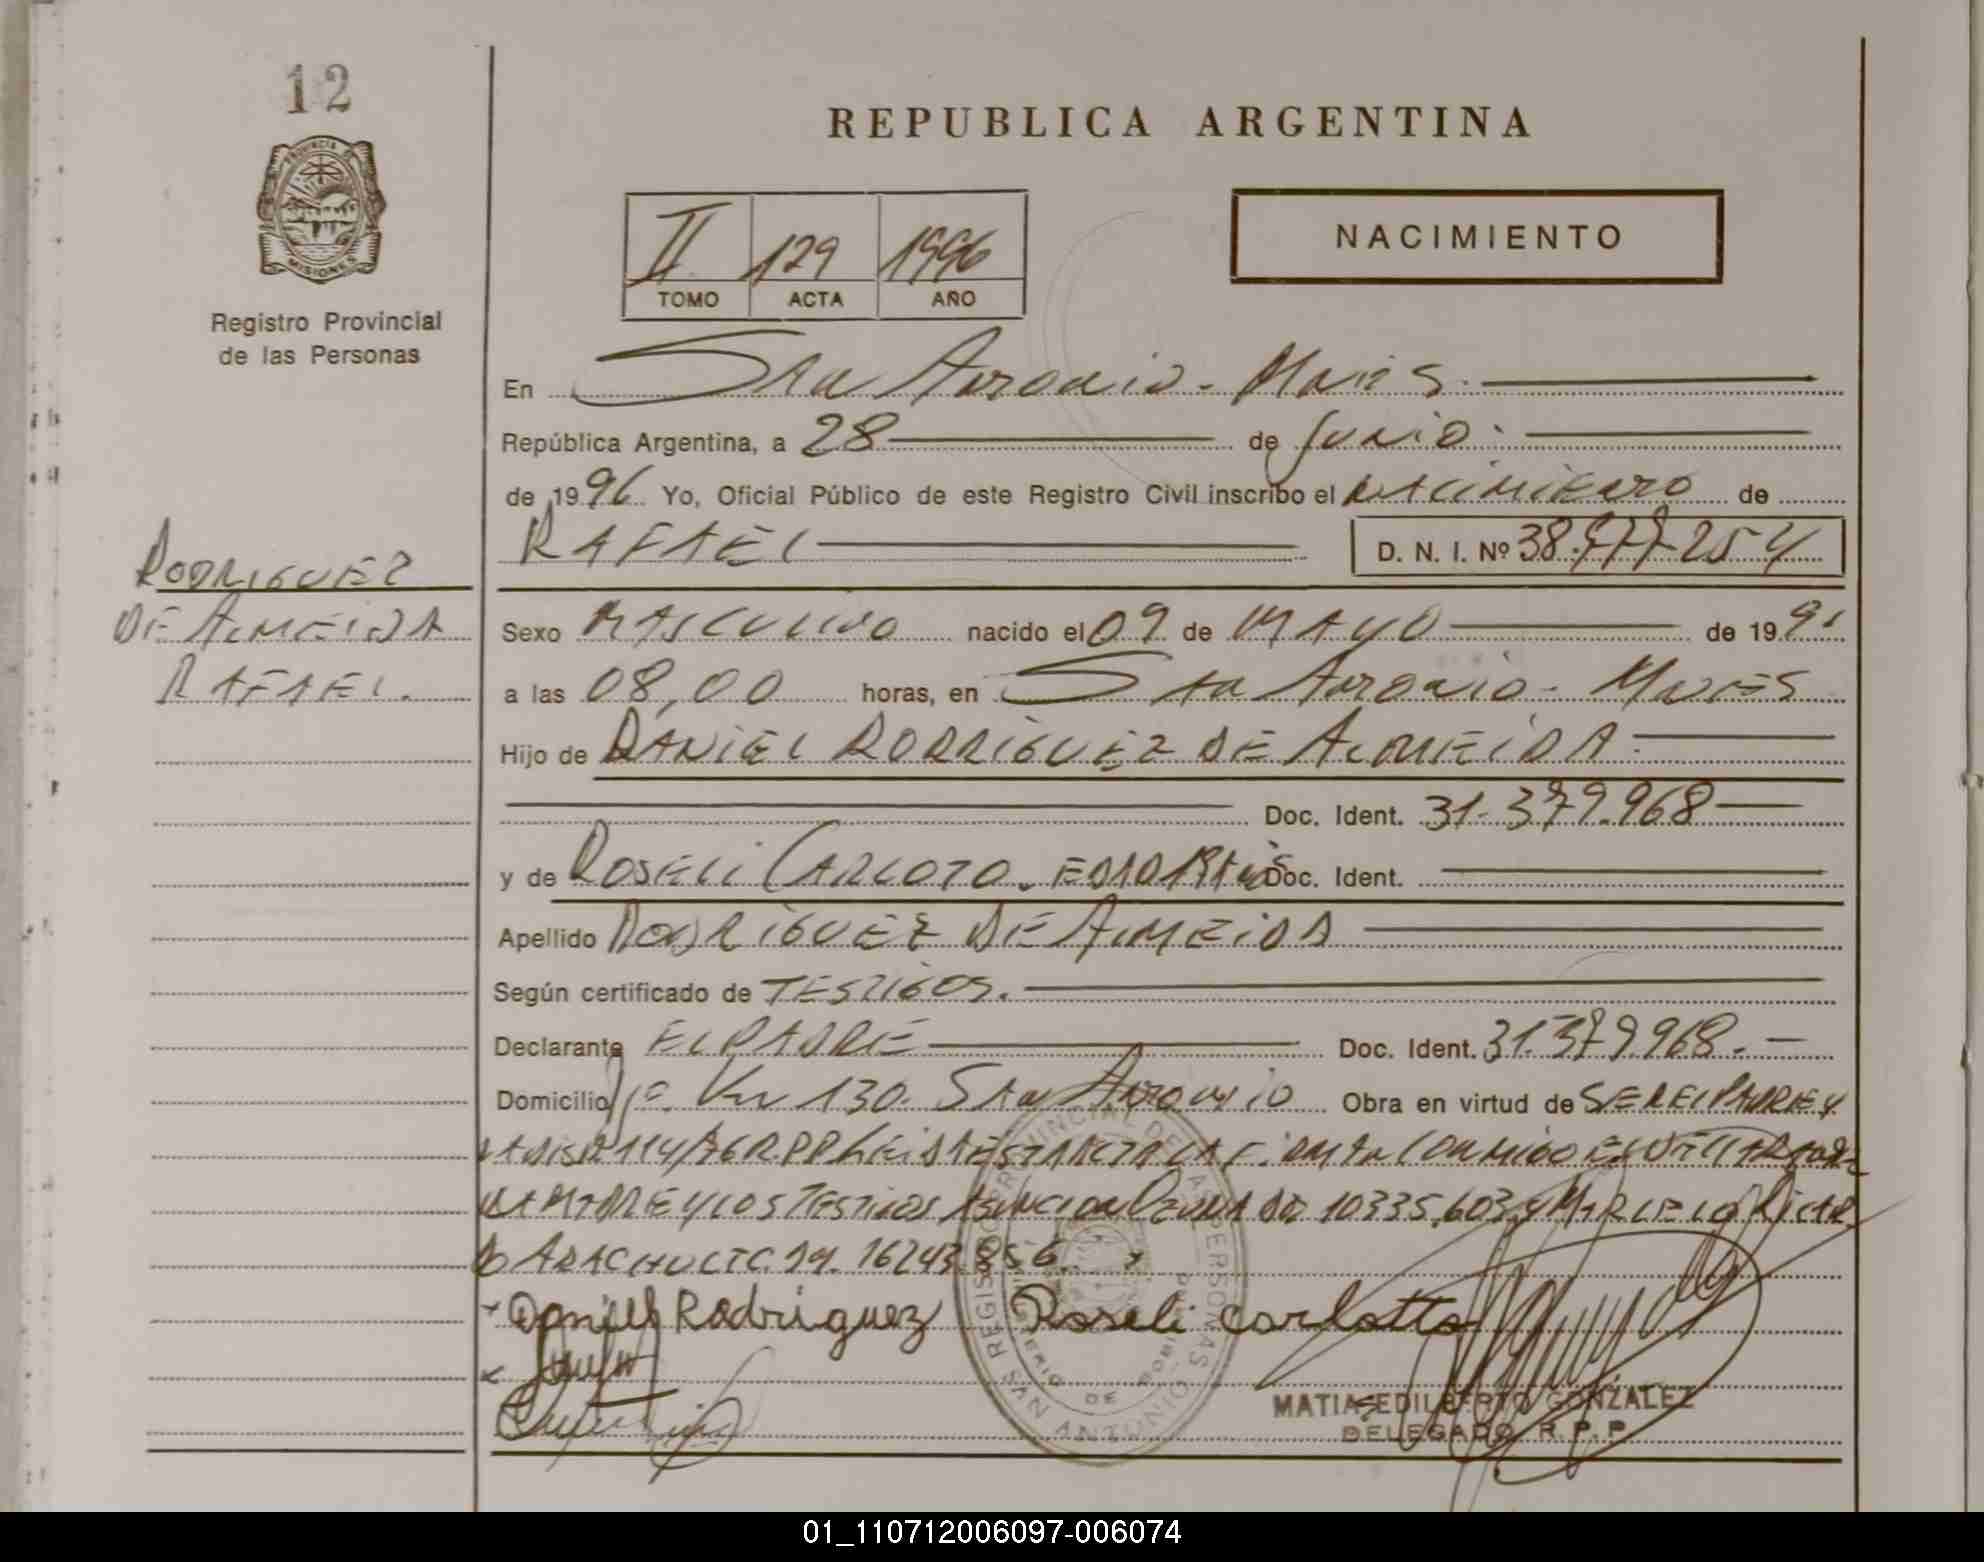 12
REPUBLICA ARGENTINA
PROVINCIA DE
MISIONES
Registro Provincial
de las Personas
II 129 1996
TOMO ACTA AÑO
NACIMIENTO
En San Antonio - Mnes.
República Argentina, a 28 de Junio.
de 1996 Yo, Oficial Público de este Registro Civil inscribo el nacimiento de
RAFAEL D. N. I. Nº 38.777.254
RODRIGUEZ
DE ALMEIDA
RAFAEL.
Sexo MASCULINO nacido el 09 de MAYO de 199
a las 08,00 horas, en San Antonio - Mnes
Hijo de DANIEL RODRIGUEZ DE ALMEIDA.
Doc. Ident. 31.379.968
y de ROSELI CARLOTO. Doc. Ident.
Apellido RODRIGUEZ DE ALMEIDA
Según certificado de TESTIGOS.
Declarante EL PADRE Doc. Ident. 31.379.968.
Domicilio Km 130. San Antonio Obra en virtud de SER EL PADRE Y
LEIDA ESTA ACTA LA FIRMAN CONMIGO EL DECLARANTE
LA MADRE Y LOS TESTIGOS ASUNCION 10335.603 Y MARCELO RICAR
DO 16243.856.
Daniel Rodriguez Roseli Carlotto
REGISTRO PROVINCIAL DE LAS PERSONAS
SAN ANTONIO
MATIAS EDILBERTO GONZALEZ
DELEGADO R.P.P.
01_110712006097-006074